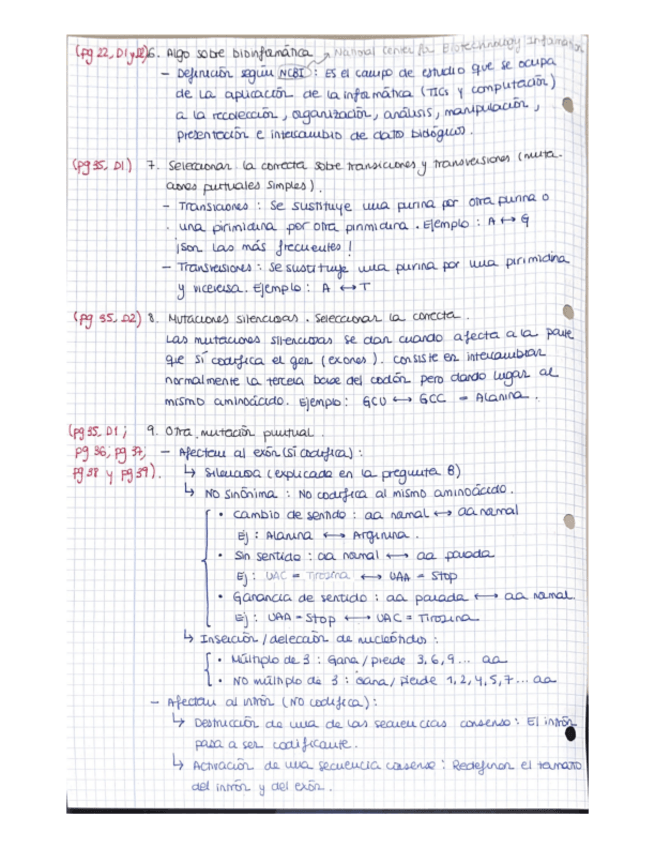 (pg 22, D1 y D2) 6. Algo sobre bioinfamática → National Center for Biotechnology Information
- Definición según NCBI: Es el campo de estudio que se ocupa
de la aplicación de la infamática (TICs y computación)
a la recolección, organización, análisis, manipulación,
presentación e intercambio de dato biológico.
(pg 35, D1) 7. Seleccionar la correcta sobre transiciones y transversiones (muta-
ciones puntuales simples).
- Transiciones: Se sustituye una purina por otra purina o
una pirimidina por otra pirimidina. Ejemplo: A ↔ G
¡son las más frecuentes!
- Transversiones: Se sustituye una purina por una pirimidina
y viceversa. Ejemplo: A ↔ T
(pg 35, D2) 8. Mutaciones silenciosas. Seleccionar la correcta.
Las mutaciones silenciosas se dan cuando afecta a la parte
que sí codifica el gen (exones). Consiste en intercambiar
normalmente la tercera base del codón pero dando lugar al
mismo aminoácido. Ejemplo: GCU ↔ GCC = Alanina.
(pg 35, D1; 9. Otra mutación puntual.
pg 36; pg 37; - Afectan al exón (sí codifica):
pg 38 y pg 39). ↳ Silenciosa (explicada en la pregunta 8)
↳ No sinónima: No codifica al mismo aminoácido.
• Cambio de sentido: aa namal ↔ aa namal
Ej: Alanina ↔ Arginina.
• Sin sentido: aa namal ↔ aa parada
Ej: UAC = Tirosina ↔ UAA = Stop
• Ganancia de sentido: aa parada ↔ aa namal.
Ej: UAA = Stop ↔ UAC = Tirosina
↳ Inserción / delección de nucleótidos:
• Múltiplo de 3: Gana / pierde 3, 6, 9... aa
• No múltiplo de 3: Gana / pierde 1, 2, 4, 5, 7... aa
- Afectan al intrón (NO codifica):
↳ Destrucción de una de las secuencias consenso: El intrón
pasa a ser codificante.
↳ Activación de una secuencia consenso: Redefinen el tamaño
del intrón y del exón.